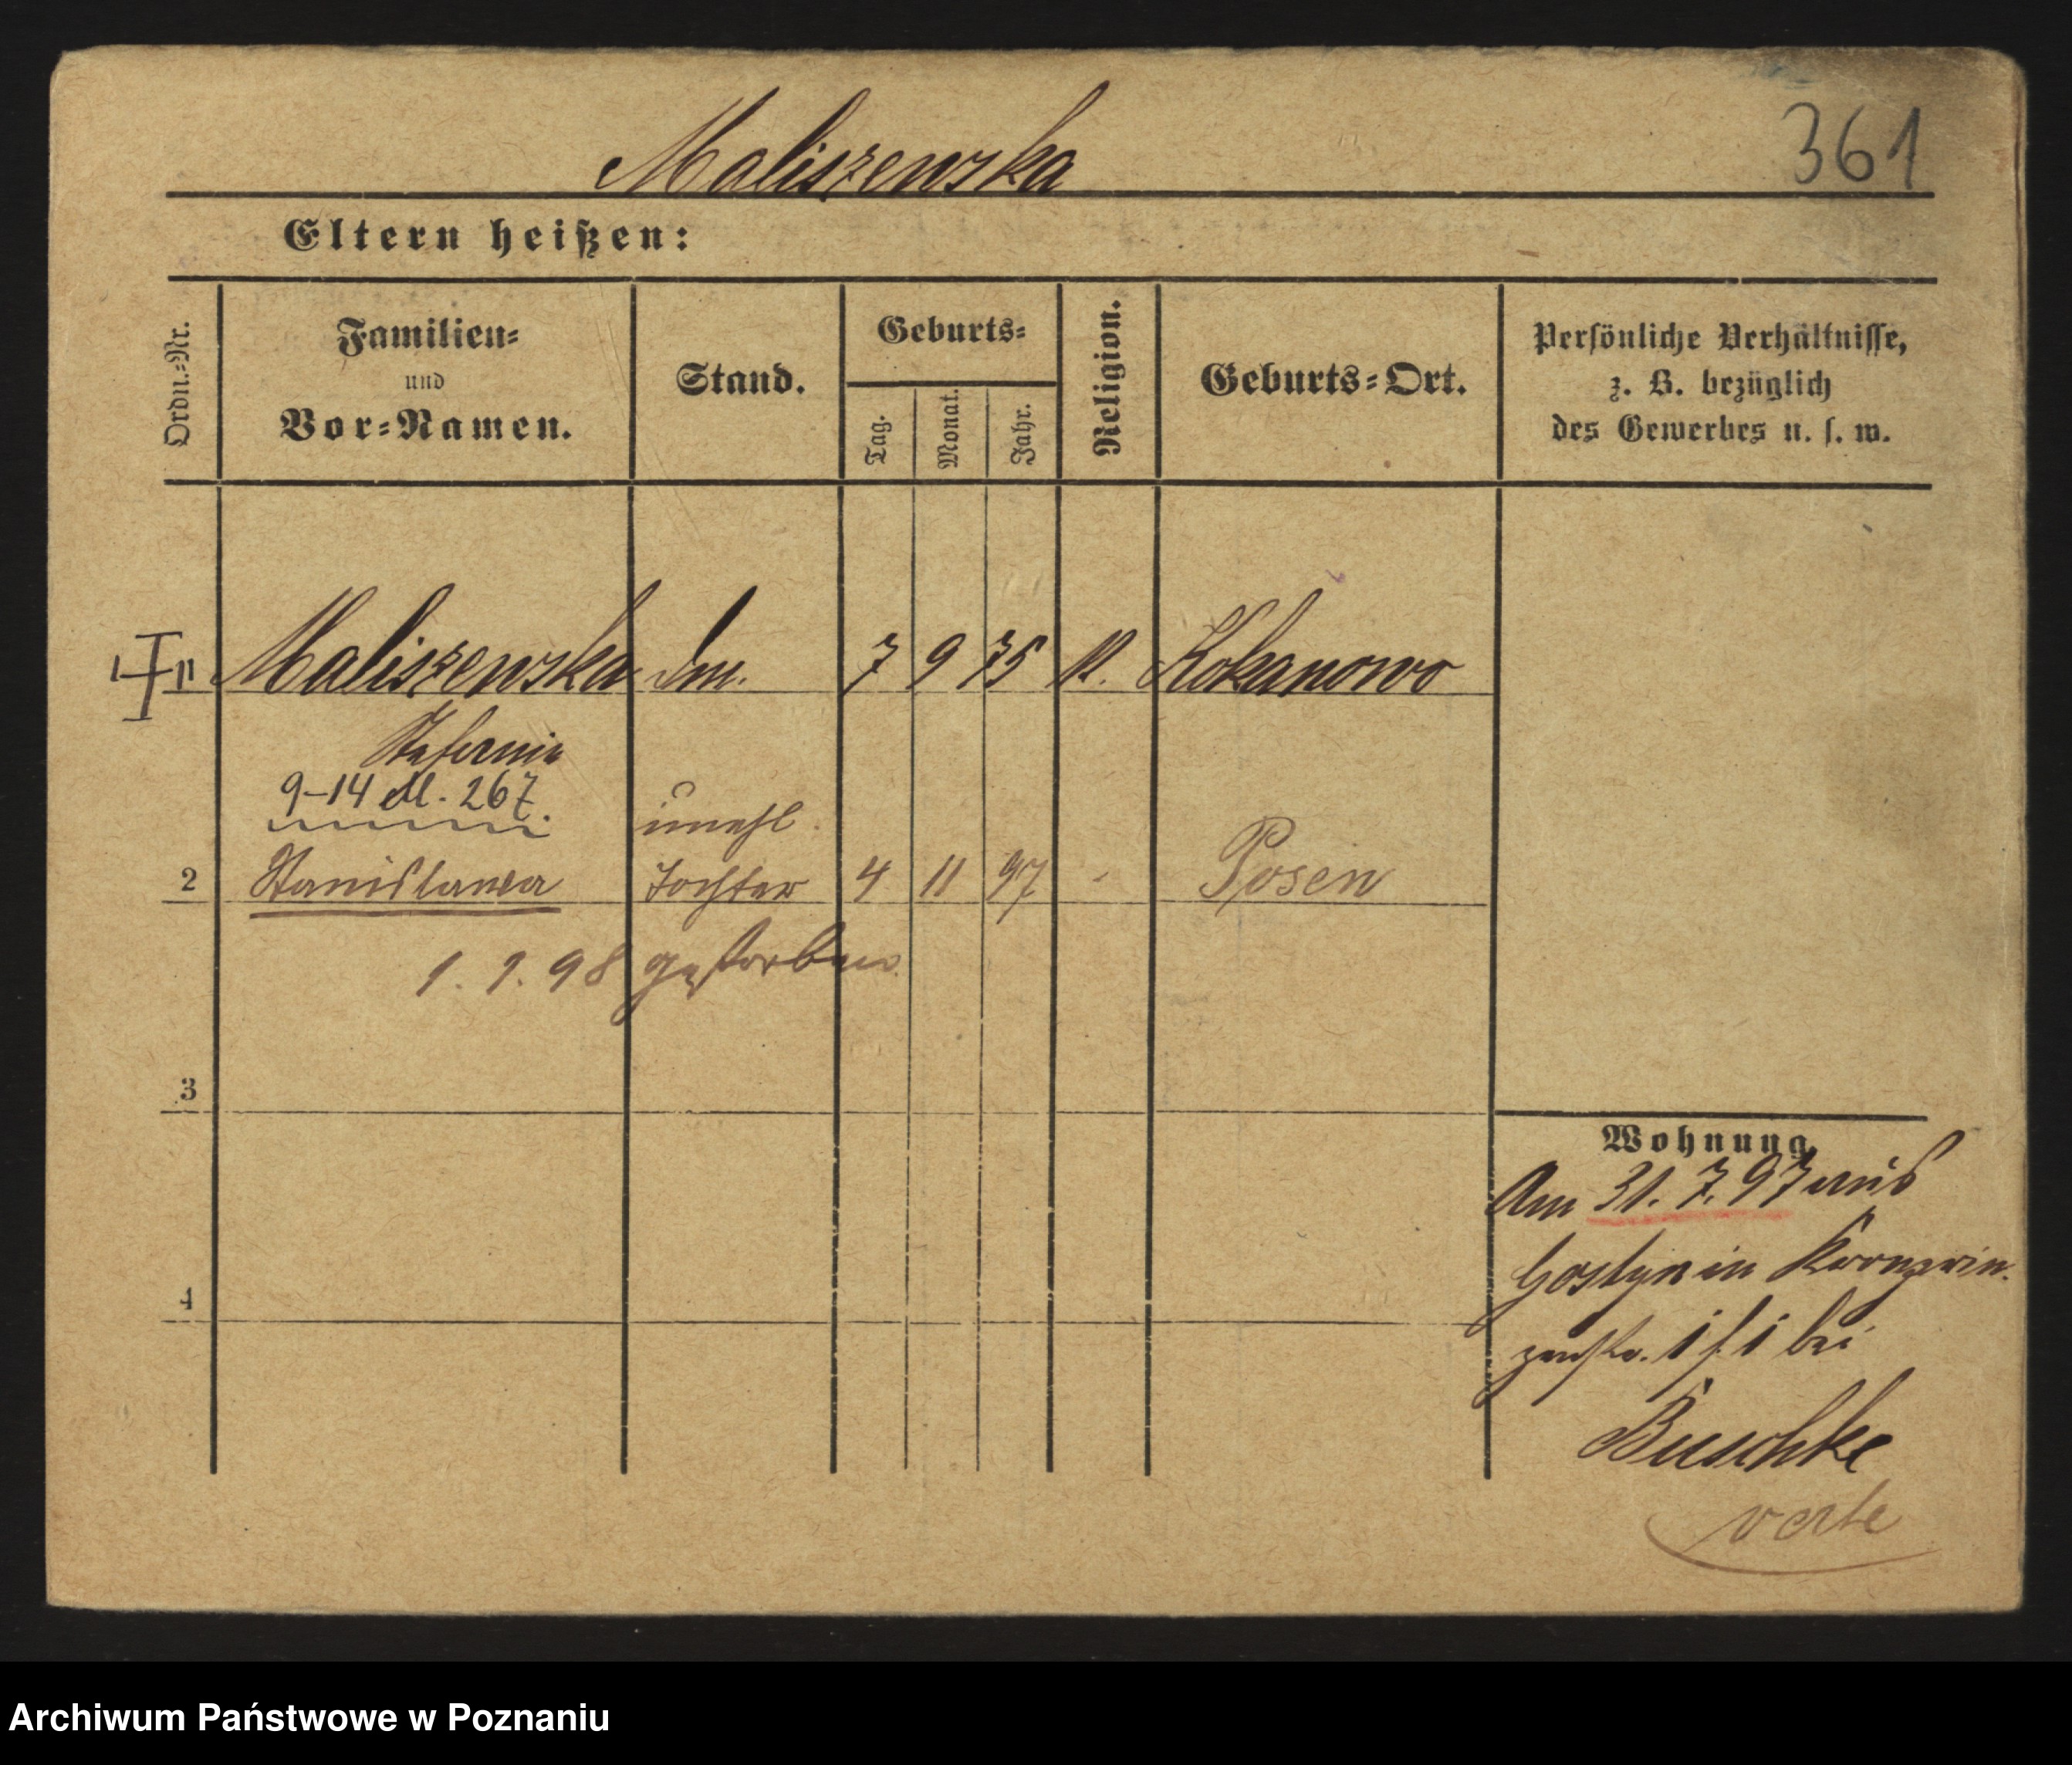 Maliszewska
361
Eltern heißen:
Ordn.-Nr.
Familien-
und
Vor-Namen.
Stand.
Geburts-
Tag.
Monat.
Jahr.
Religion.
Geburts-Ort.
Persönliche Verhältnisse,
z. B. bezüglich
des Gewerbes u. s. w.
Maliszewska 7 9 75 k. Kokanowo
Stefania
9-14 M. 267.
unehl.
2 Stanislawa Tochter 4 11 97 - Posen
1. 1. 98 gestorben
3
Wohnung
Am 31. 7. 97 aus
Gostyn in Kronprin-
zenstr. bei
4
Buschke
verte
Archiwum Państwowe w Poznaniu